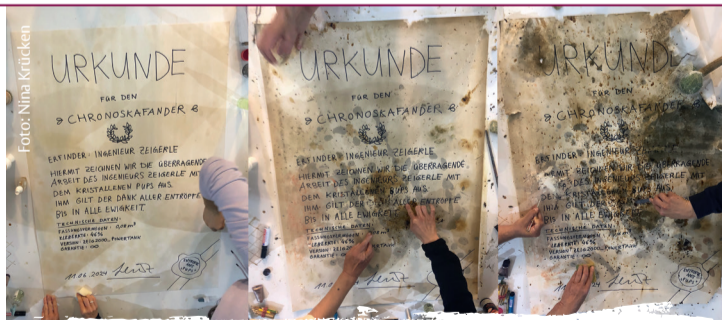 Foto: Nina Krücken
URKUNDE
FÜR DEN
CHRONOSKAFANDER
ERFINDER: INGENIEUR ZEIGERLE
HIERMIT ZEICHNEN WIR DIE ÜBERRAGENDE
ARBEIT DES INGENIEURS ZEIGERLE MIT
DEM KRISTALLENEN PUPS AUS.
IHM GILT DER DANK ALLER ENTROPFE
BIS IN ALLE EWIGKEIT.
TECHNISCHE DATEN:
GARANTIE:
11.06.2024
URKUNDE
FÜR DEN
CHRONOSKAFANDER
ERFINDER: INGENIEUR ZEIGERLE
HIERMIT ZEICHNEN WIR DIE ÜBERRAGENDE
ARBEIT DES INGENIEURS ZEIGERLE MIT
DEM KRISTALLENEN PUPS AUS.
IHM GILT DER ALLER ENTROPFE
BIS IN ALLE EWIGKEIT
TECHNISCHE DATEN:
URKUNDE
FÜR DEN
CHRONOSKAFANDER
ERFINDER: INGENIEUR ZEIGERLE
HIERMIT ZEICHNEN WIR DIE ÜBERRAGENDE
ARBEIT DES INGENIEURS ZEIGERLE MIT
DEM KRISTALLENEN PUPS AUS.
IHM GILT DER
BIS IN ALLE EWIGKEIT
TECHNISCHE DATEN: